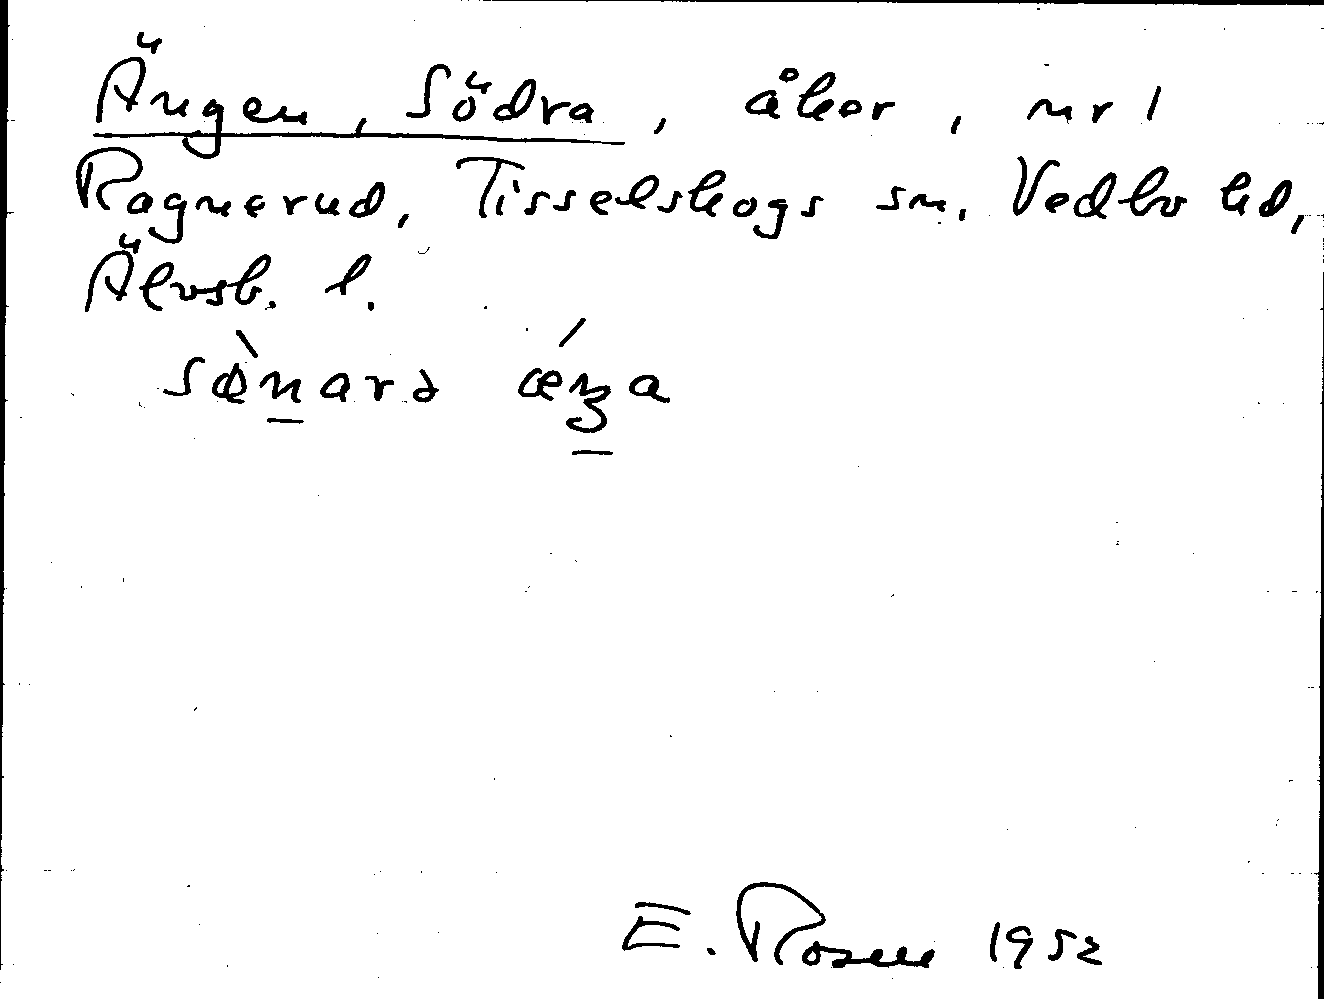 Ängen, Södra, åker, nr 1
Ragnerud, Tisselskogs sn, Vedbo hd,
Älvsb. l.
E. Rosen 1952